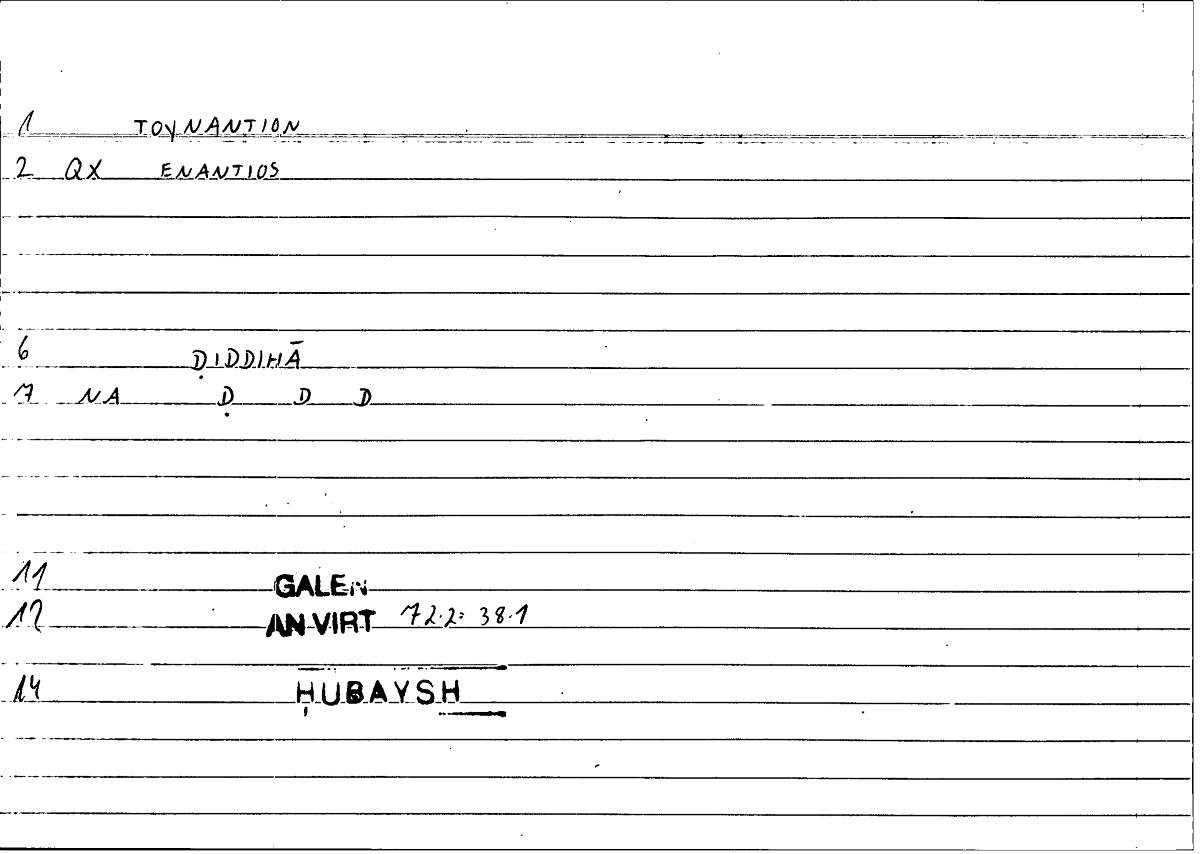 1 TOYNANTION
2 QX ENANTIOS
6 ḌIDDIHĀ
7 NA Ḍ D D
11 GALEN
12 AN VIRT 72.2: 38.1
14 ḤUBAYSH